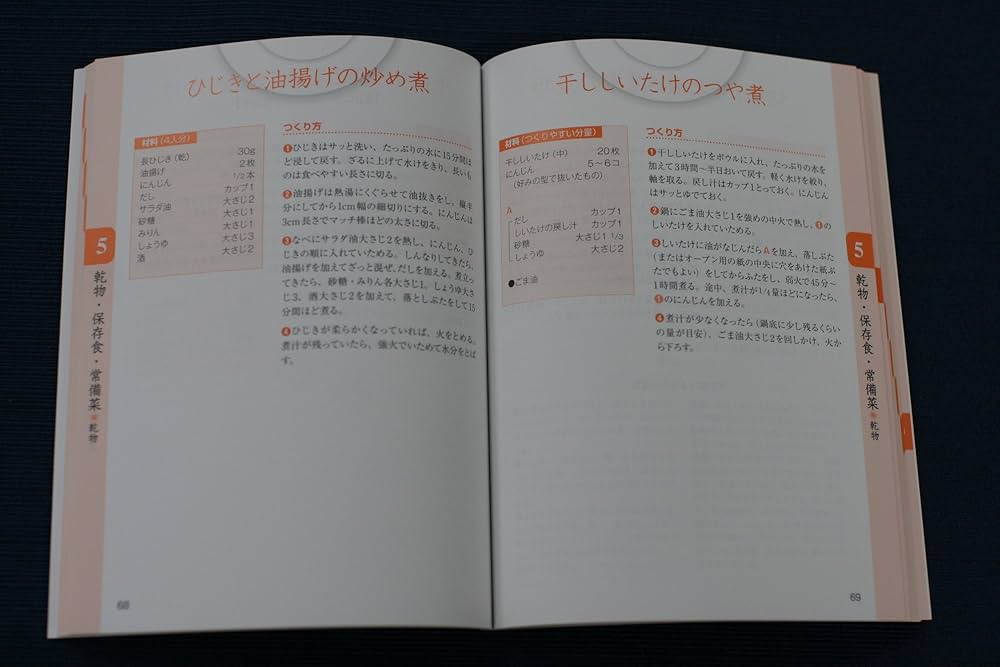 ひじきと油揚げの炒め煮
材料(4人分)
長ひじき(乾) 30g
油揚げ 2枚
にんじん 1/2本
だし カップ1
サラダ油 大さじ2
砂糖 大さじ1
みりん 大さじ1
しょうゆ 大さじ3
酒 大さじ2
つくり方
❶ひじきはサッと洗い、たっぷりの水に15分間ほ
ど浸して戻す。ざるに上げて水けをきり、長いも
のは食べやすい長さに切る。
❷油揚げは熱湯にくぐらせて油抜きをし、縦半
分にしてから1cm幅の細切りにする。にんじんは
3cm長さでマッチ棒ほどの太さに切る。
❸なべにサラダ油大さじ2を熱し、にんじん、ひ
じきの順に入れていためる。しんなりしてきたら、
油揚げを加えてざっと混ぜ、だしを加える。煮立っ
てきたら、砂糖・みりん各大さじ1、しょうゆ大さ
じ3、酒大さじ2を加えて、落としぶたをして15
分間ほど煮る。
❹ひじきが柔らかくなっていれば、火をとめる。
煮汁が残っていたら、強火でいためて水分をとば
す。
5
乾物・保存食・常備菜 乾物
68
干ししいたけのつや煮
材料(つくりやすい分量)
干ししいたけ(中) 20枚
にんじん 5~6コ
(好みの型で抜いたもの)
A
だし カップ1
しいたけの戻し汁 カップ1
砂糖 大さじ1 1/3
しょうゆ 大さじ2
●ごま油
つくり方
❶干ししいたけをボウルに入れ、たっぷりの水を
加えて3時間~半日おいて戻す。軽く水けを絞り、
軸を取る。戻し汁はカップ1とっておく。にんじん
はサッとゆでておく。
❷鍋にごま油大さじ1を強めの中火で熱し、❶の
しいたけを入れていためる。
❸しいたけに油がなじんだらAを加え、落しぶた
(またはオーブン用の紙の中央に穴をあけた紙ぶ
たでもよい)をしてからふたをし、弱火で45分~
1時間煮る。途中、煮汁が1/4量ほどになったら、
❶のにんじんを加える。
❹煮汁が少なくなったら(鍋底に少し残るくらい
の量が目安)、ごま油大さじ2を回しかけ、火か
ら下ろす。
5
乾物・保存食・常備菜 乾物
69